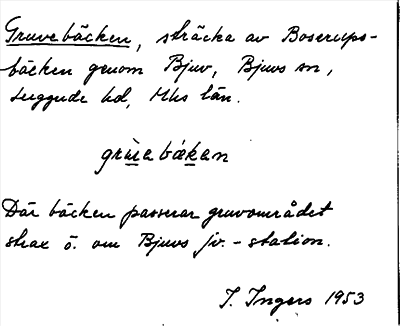 Gruvebäcken, sträcka av Boserups-
bäcken genom Bjuv, Bjuvs sn,
Luggude hd, Mhs län.
grùea bǽkan
Där bäcken passerar gruvområdet
strax ö. om Bjuvs jv.-station.
I. Ingers 1953